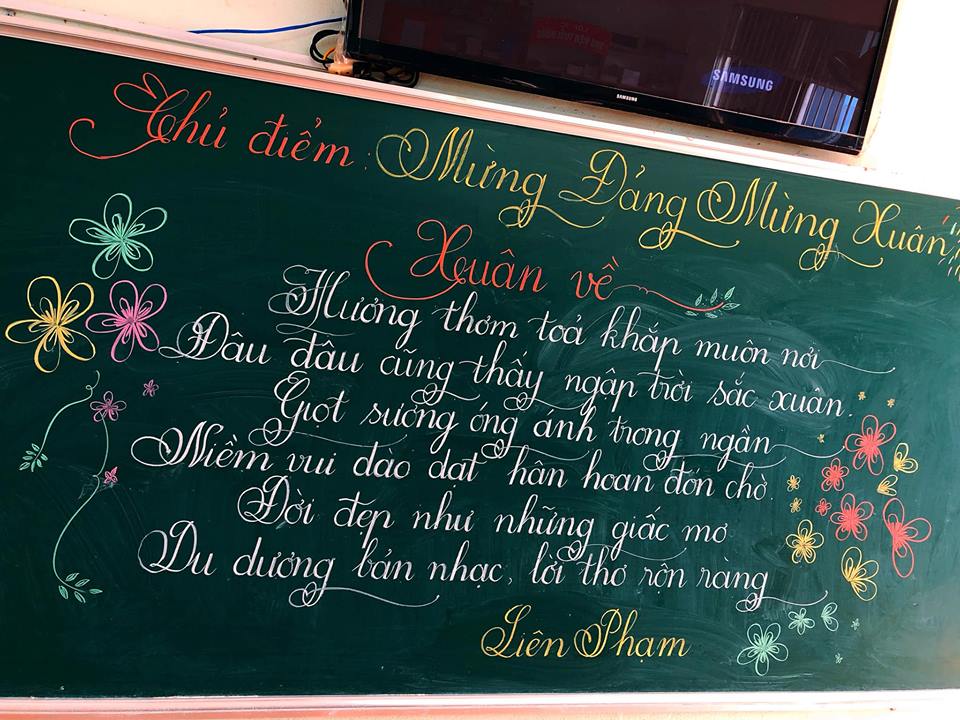 SAMSUNG
SAMSUNG
Chủ điểm: Mừng Đảng Mừng Xuân
Xuân về
Hương thơm toả khắp muôn nơi
Đâu đâu cũng thấy ngập trời sắc xuân.
Giọt sương óng ánh trong ngần
Niềm vui dào dạt hân hoan đón chờ.
Đời đẹp như những giấc mơ
Du dương bản nhạc, lời thơ rộn ràng
Liên Phạm